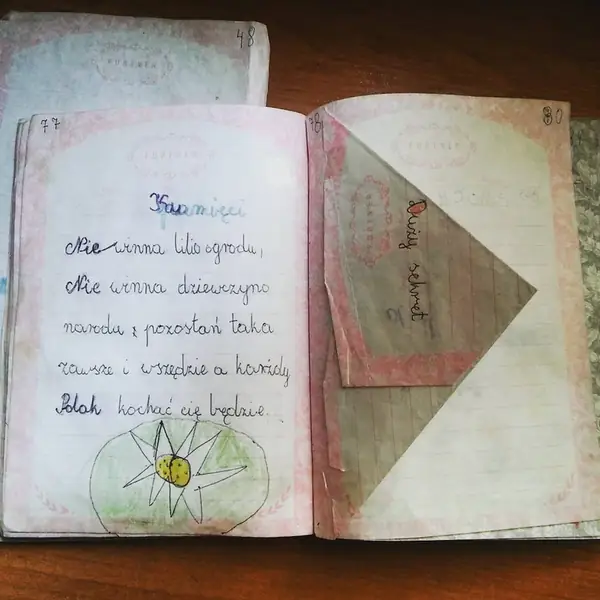 48
77
Ku pamięci
Nie winna lilio ogrodu,
Nie winna dziewczyno
narodu z pozostań taka
zawsze i wszędzie a każdy
Polak kochać cię będzie.
78
80
Duży sekret